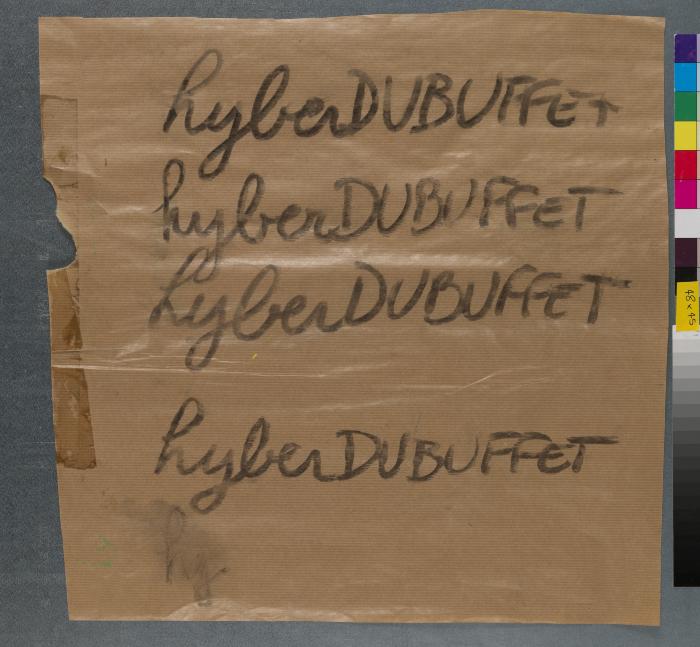 hyberDUBUFFET
hyberDUBUFFET
hyberDUBUFFET
hyberDUBUFFET
hy
48 x 45